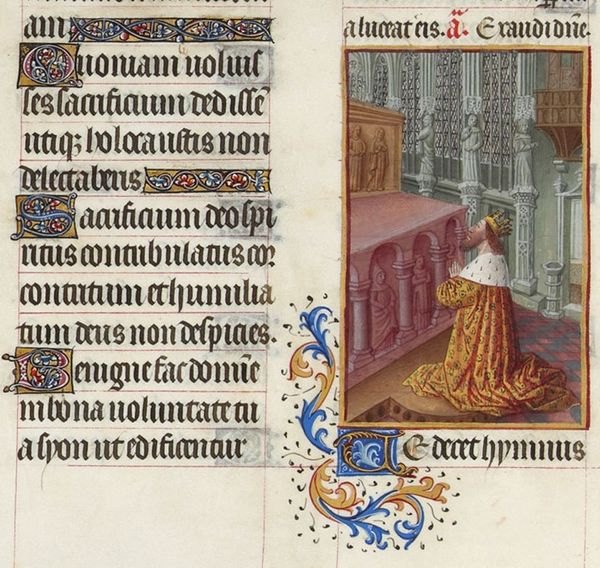 am
Quoniam uoluis
ses sacrificium dedissē
utiqꝫ holocaustis non
delectaberis
Sacrificium deo spi
ritus contribulatus cor
contritum et humilia
tum deus non despicies.
Benigne fac domine
in bona uoluntate tu
a syon ut edificentur
a luceat eis. a. Exaudi dn̄e.
Te decet hymnus